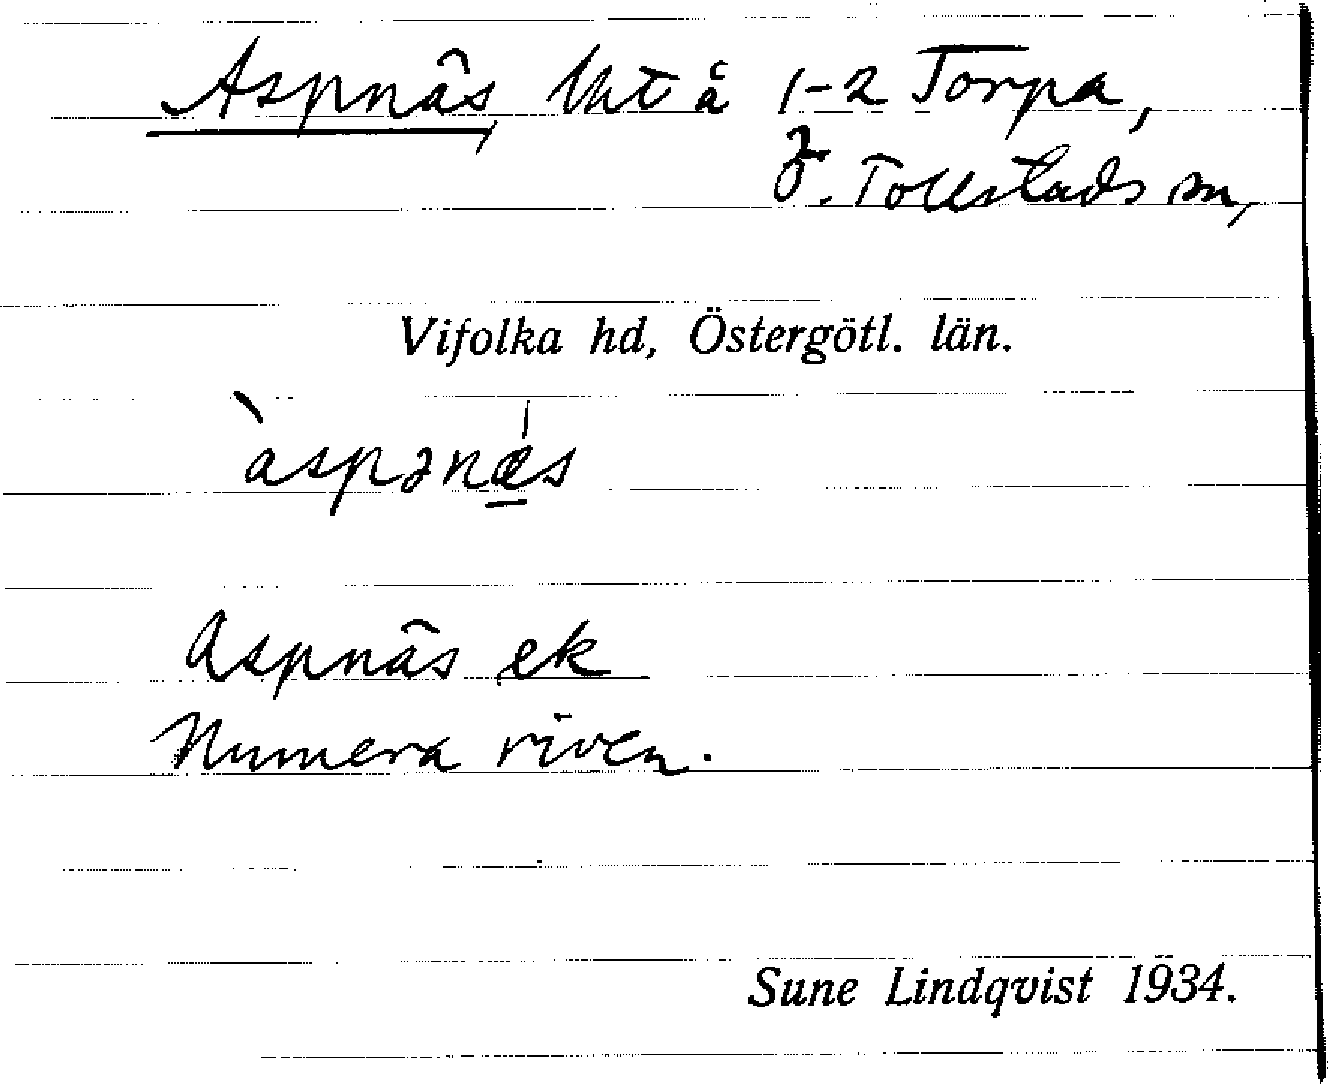 Aspnäs, lht å 1-2 Torpa,
V. Tollstads sn,
Vifolka hd, Östergötl. län.
àspənǽs
Aspnäs ek
Numera riven.
Sune Lindqvist 1934.